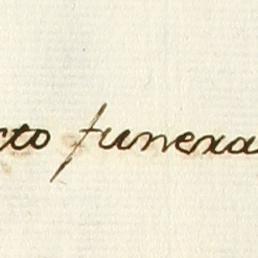 cto funera